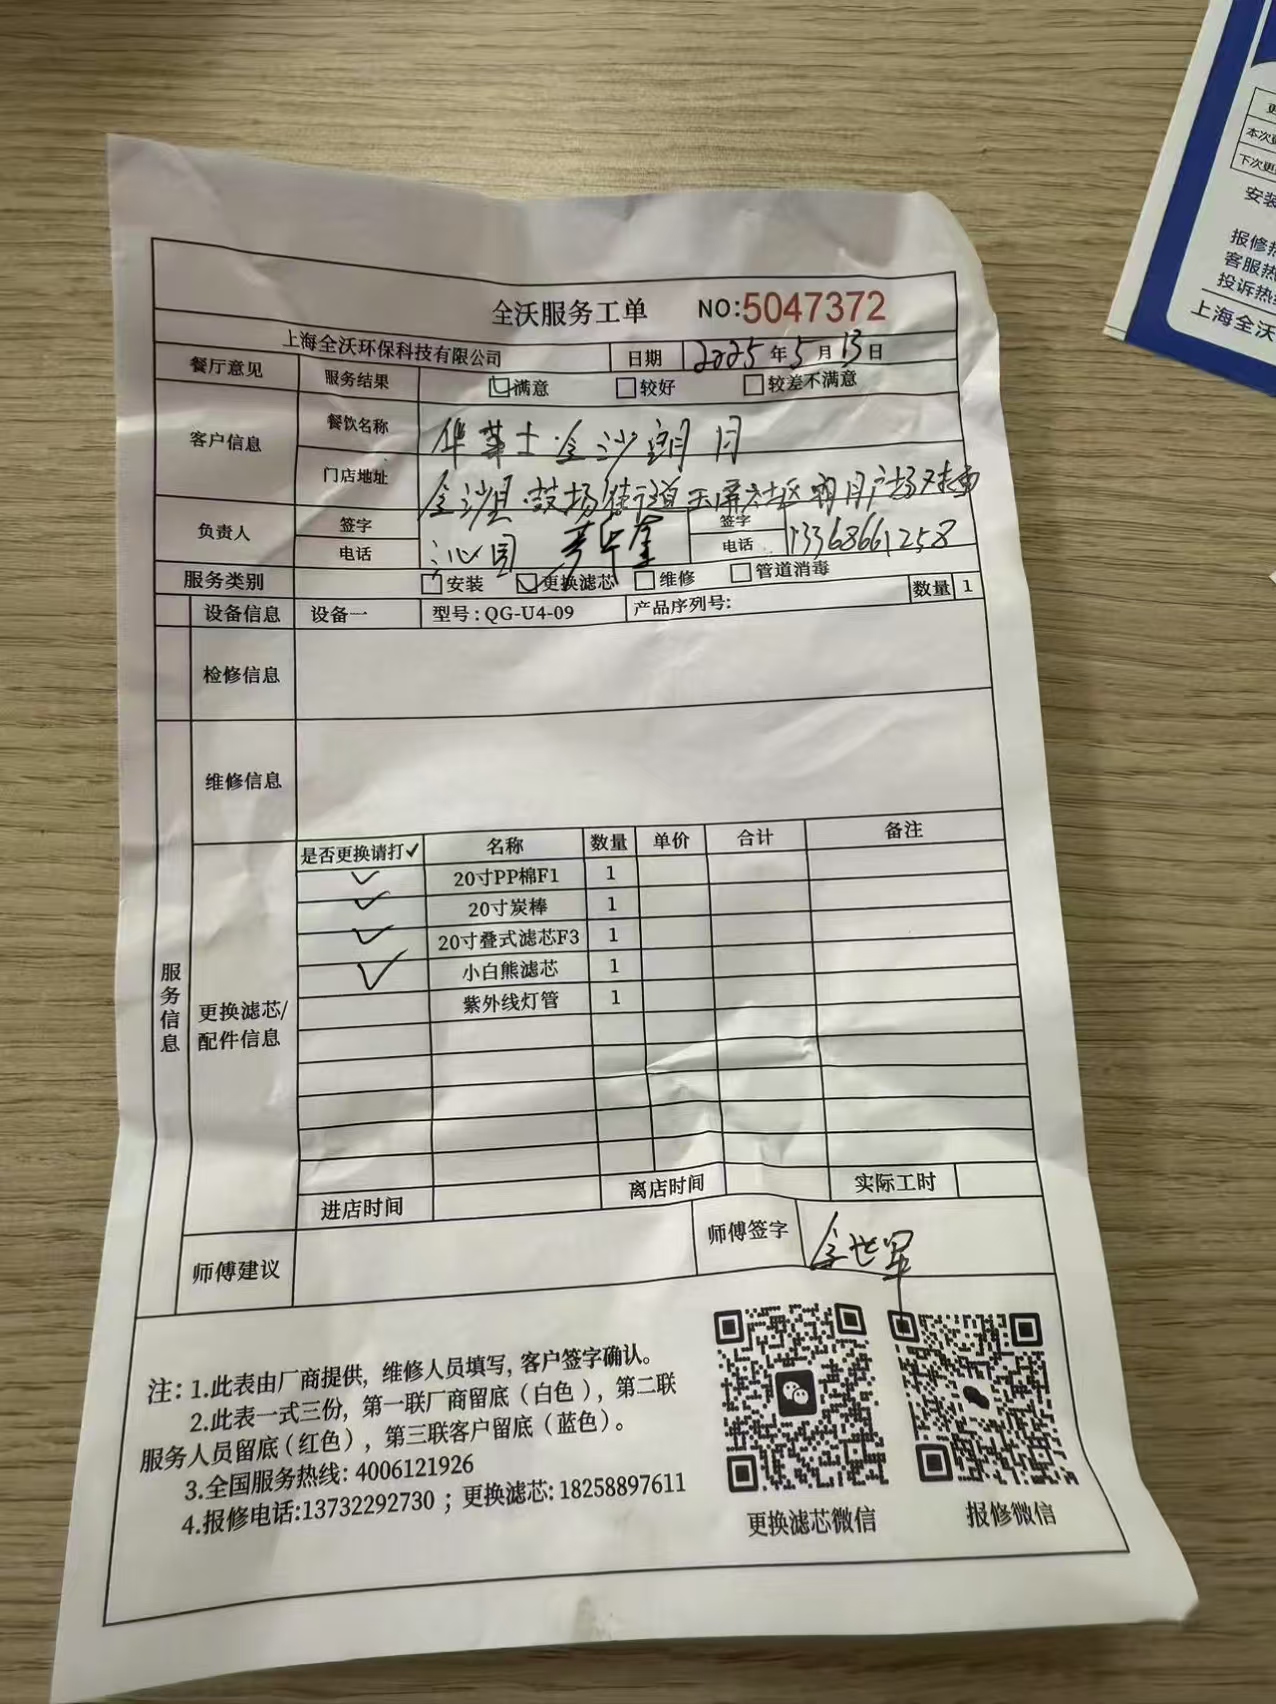 全沃服务工单 NO:5047372
上海全沃环保科技有限公司 日期 2025年5月13日
餐厅意见 服务结果 满意 较好 较差不满意
客户信息 餐饮名称 华莱士金沙朗月
门店地址 金沙县鼓场街道玉屏社区朗月广场对面
负责人 签字 签字
电话 沁园 电话 13368661258
服务类别 安装 更换滤芯 维修 管道消毒
设备信息 设备一 型号:QG-U4-09 产品序列号: 数量 1
检修信息
维修信息
服务信息
更换滤芯/配件信息
是否更换请打✓ 名称 数量 单价 合计 备注
✓ 20寸PP棉F1 1
✓ 20寸炭棒 1
✓ 20寸叠式滤芯F3 1
✓ 小白熊滤芯 1
紫外线灯管 1
进店时间 离店时间 实际工时
师傅建议 师傅签字
注:1.此表由厂商提供,维修人员填写,客户签字确认。
2.此表一式三份,第一联厂商留底(白色),第二联
服务人员留底(红色),第三联客户留底(蓝色)。
3.全国服务热线:4006121926
4.报修电话:13732292730;更换滤芯:18258897611
更换滤芯微信 报修微信
本次更
下次更
安装
报修热
客服热
投诉热线
上海全沃